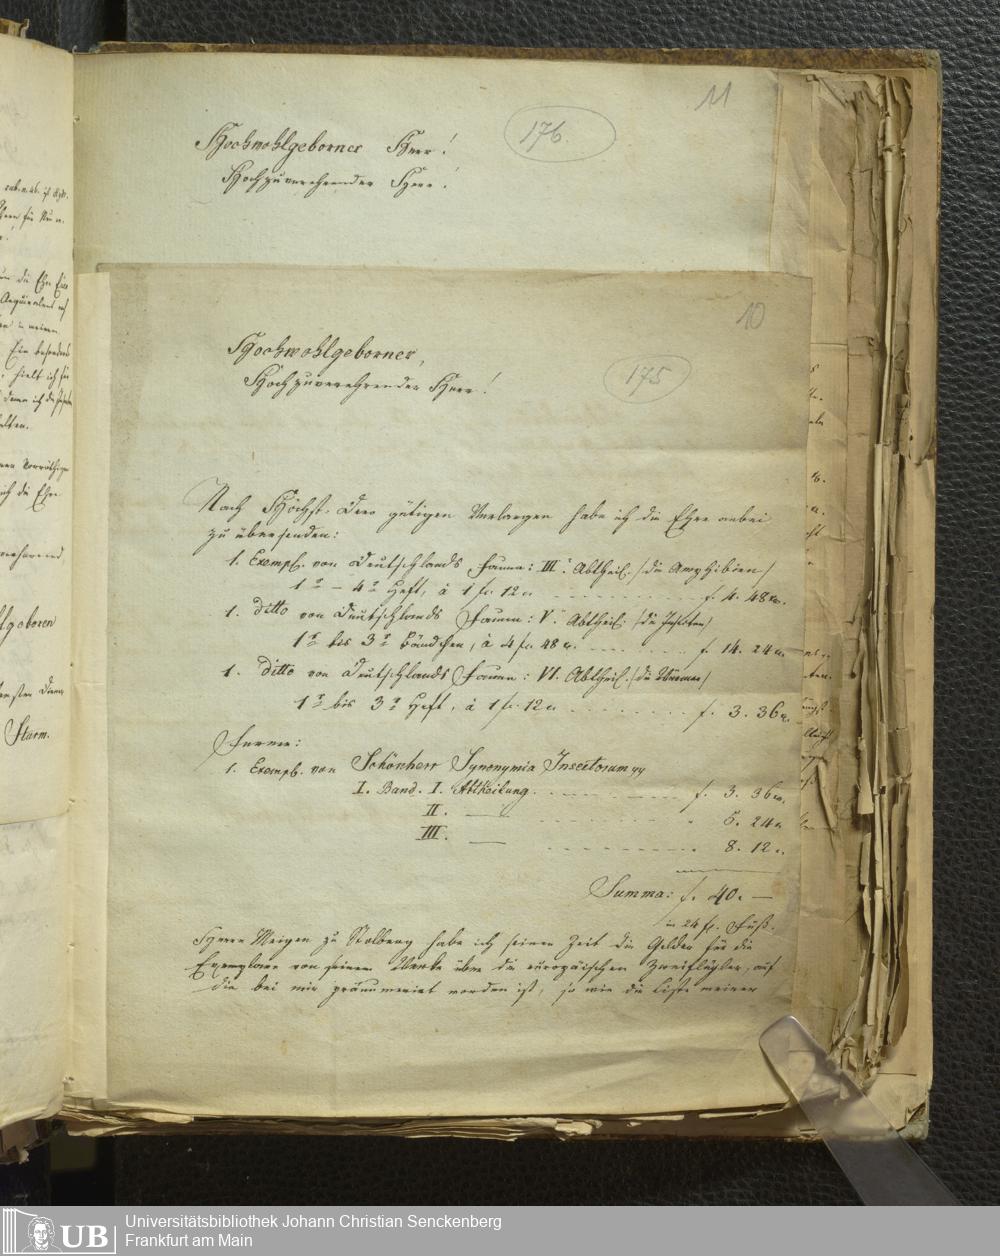 11
176.
Hochwohlgeborner Herr!
Hochzuverehrender Herr!
10
175
Hochwohlgeborner,
Hochzuverehrender Herr!
Nach Höchst-Dero gütigen Verlangen habe ich die Ehre anbei
zu übersenden:
1. Exempl. von Deutschlands Fauna: III. Abtheil. /die Amphibien/
1s – 4s Heft, à 1 f. 12 x. f. 4. 48 x.
1. ditto von Deutschlands Fauna: V. Abtheil. /die Insekten/
1s bis 3s Bändchen, à 4 f. 48 x. f. 14. 24 x.
1. ditto von Deutschlands Fauna: VI. Abtheil. /die Würmer/
1s bis 3s Heft, à 1 f. 12 x. f. 3. 36 x.
Ferner:
1. Exempl. von Schönherr Synonymia Insectorum
I. Band. I. Abtheilung f. 3. 36 x.
II. — 5. 24 x.
III. — 8. 12 x.
Summa: f. 40. —
in 24 f. Fuß.
Herrn Meigen zu Stolberg habe ich seiner Zeit die Gelder für die
Exemplare von seinem Werke über die europäischen Zweiflügler, auf
die bei mir pränumerirt worden ist, so wie die Liste meiner
Sturm.
UB
Universitätsbibliothek Johann Christian Senckenberg
Frankfurt am Main